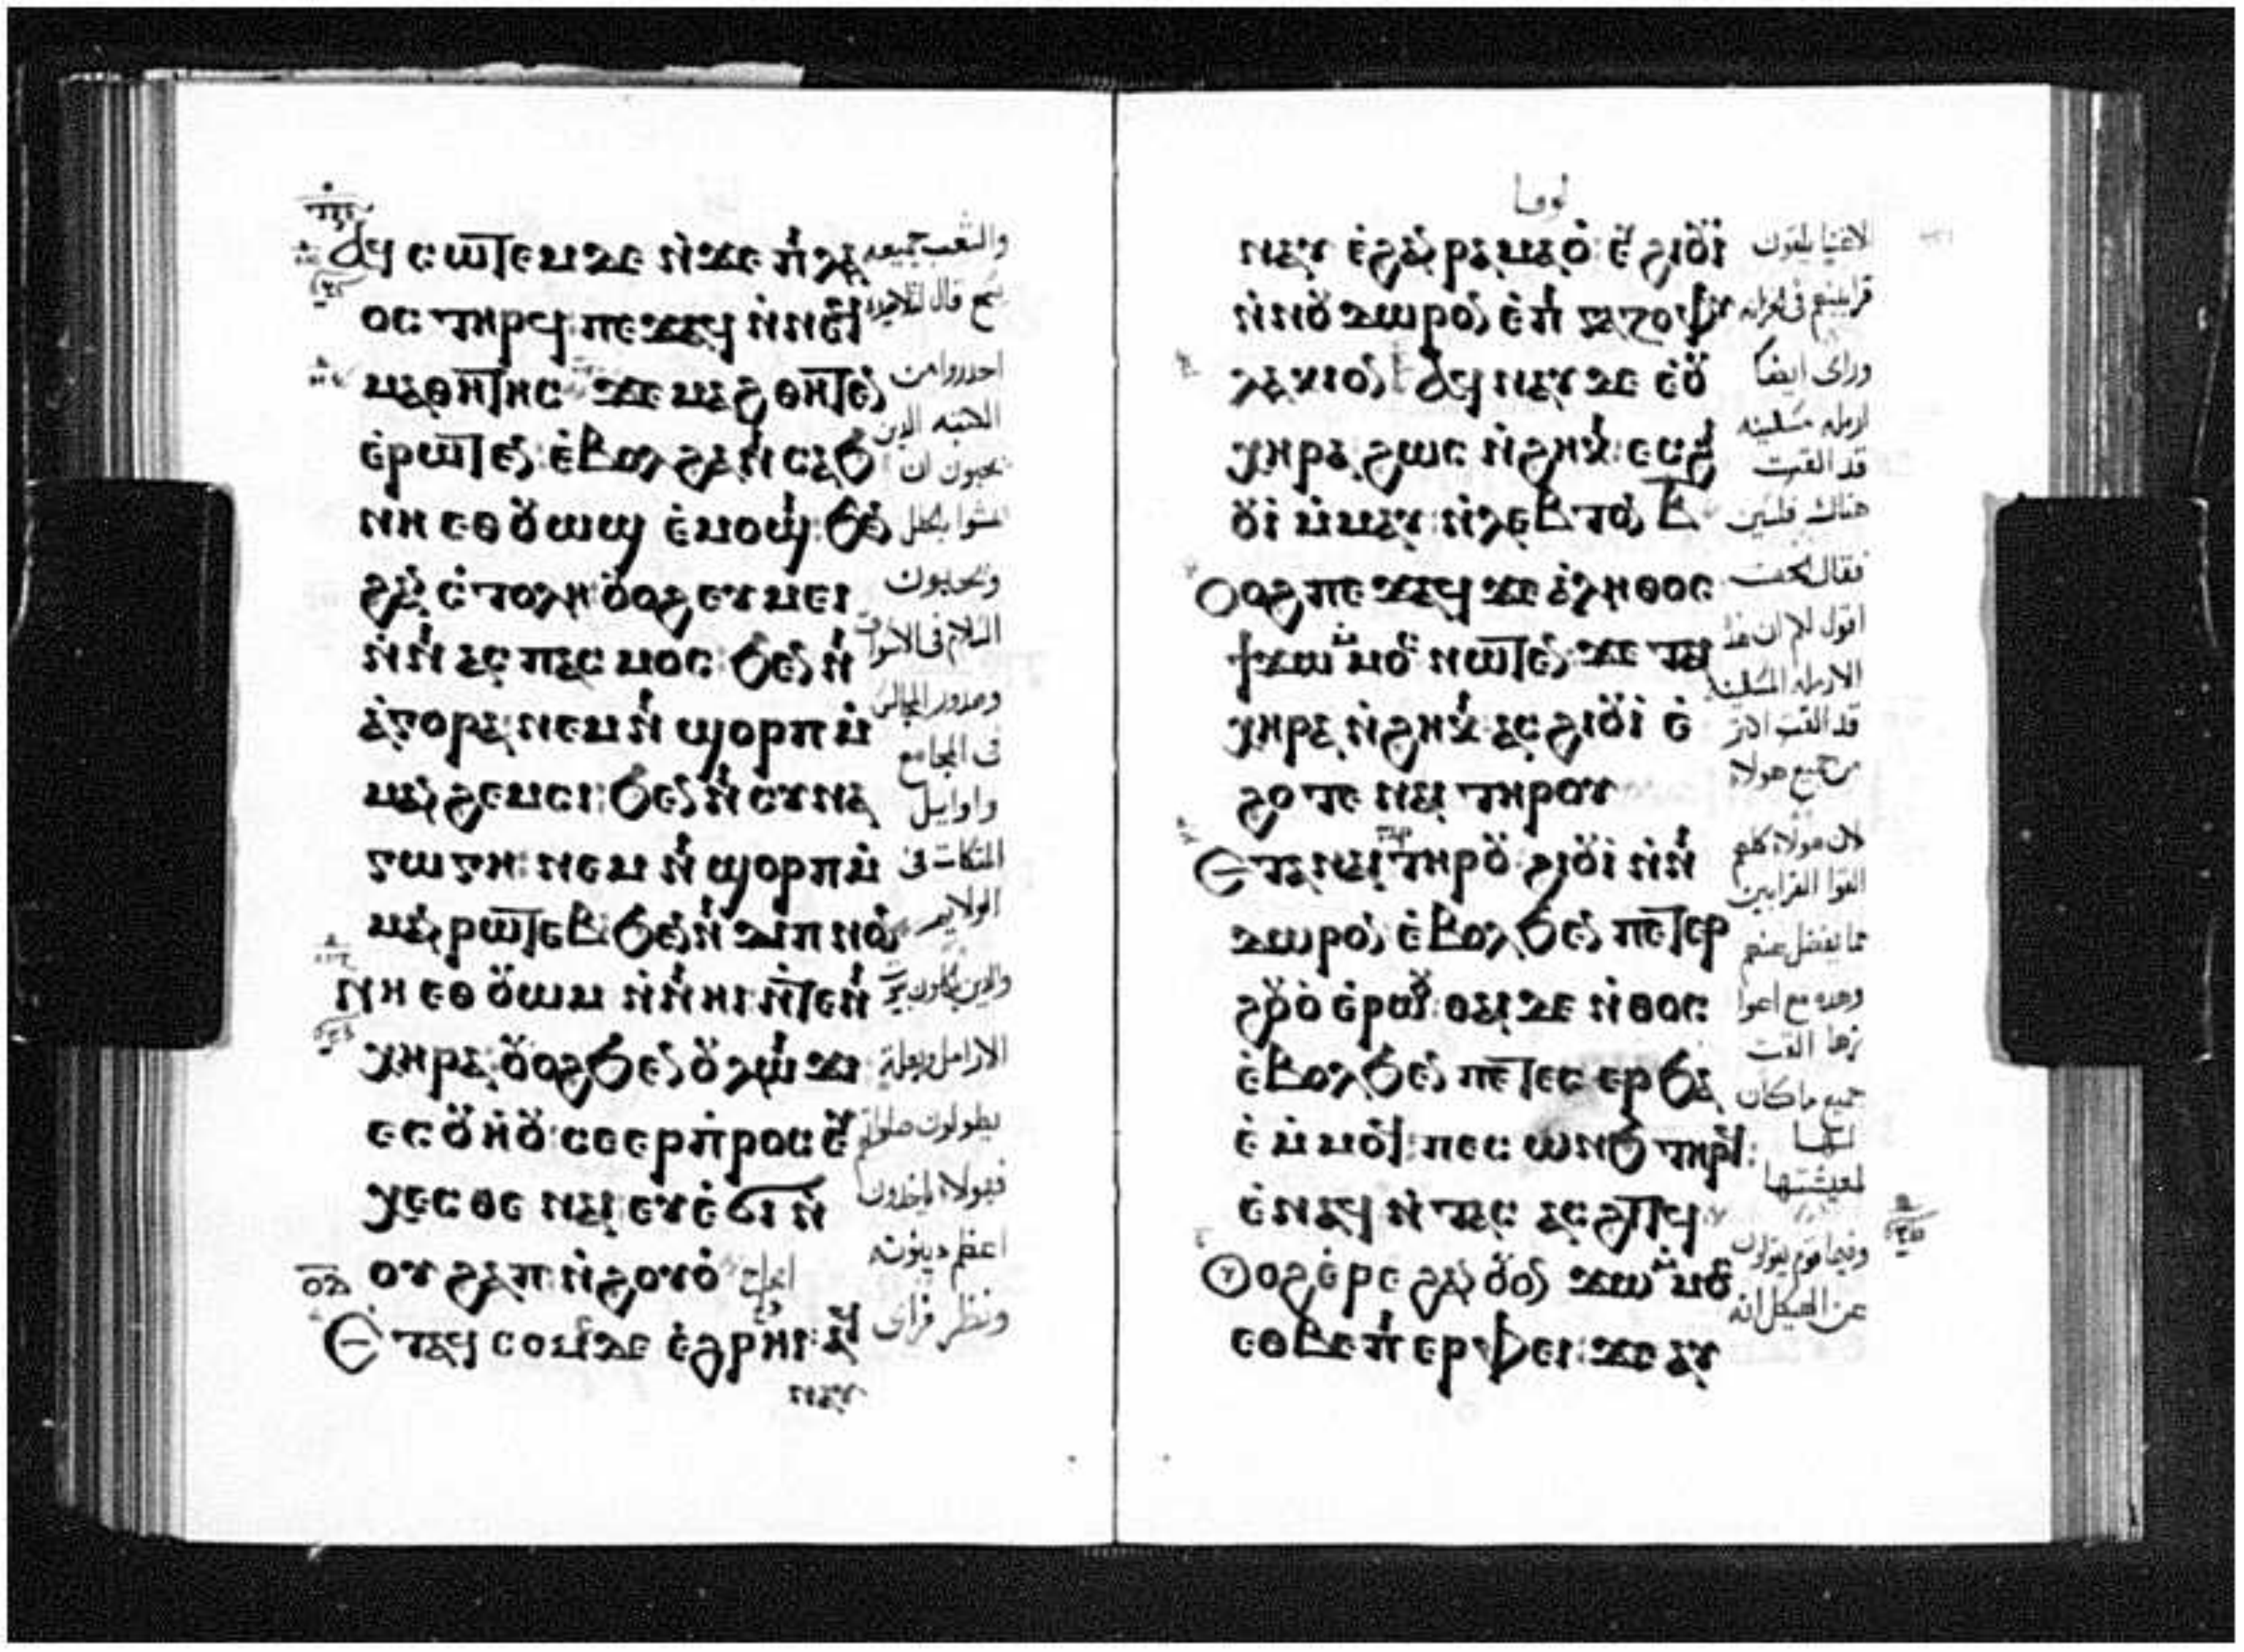 ⲁϥ ⲥⲱⲧⲉⲙ ⲇⲉ ⲛ̀ϫⲉ ⲡⲓⲗⲁ
ⲟⲥ ⲧⲏⲣϥ: ⲡⲉϫⲁϥ ⲛ̀ⲛⲉϥ
ⲙⲁⲑⲏⲧⲏⲥ ϫⲉ ⲙⲁϩⲑⲏⲧⲉⲛ
ⲉ̀ⲣⲱⲧⲉⲛ: ⲉ̀ⲃⲟⲗ ϩⲁ ⲛⲓⲥⲁϧ
ⲛⲏ ⲉⲑⲟⲩⲱϣ ⲉ̀ⲙⲟϣⲓ: ϧⲉⲛ
ϩⲁⲛⲥ̀ⲧⲟⲗⲏ: ⲟⲩⲟϩ ⲉⲩⲙⲉⲓ
ⲛ̀ⲛⲓⲁⲥⲡⲁⲥⲙⲟⲥ: ϧⲉⲛ ⲛⲓ
ⲁ̀ⲅⲟⲣⲁ: ⲛⲉⲙ ⲛⲓϣⲟⲣⲡ ⲙ̀
ⲙⲁⲛϩⲉⲙⲥⲓ: ϧⲉⲛ ⲛⲓⲥⲩⲛⲁ
ⲅⲱⲅⲏ: ⲛⲉⲙ ⲛⲓϣⲟⲣⲡ ⲙ̀
ⲙⲁⲛⲣⲱⲧⲉⲃ: ϧⲉⲛ ⲛⲓⲇⲓⲡⲛⲟⲛ
ⲛⲏ ⲉⲑⲟⲩⲱⲙ ⲛ̀ⲛⲓⲏⲓ: ⲛ̀ⲧⲉ ⲛⲓ
ⲭⲏⲣⲁ: ⲟⲩⲟϩ ϧⲉⲛ ⲟⲩⲗⲱⲓϫⲓ
ⲉⲥⲟⲩⲏⲟⲩ: ⲥⲉⲉⲣⲡ̀ⲣⲟⲥⲉⲩ
ⲭⲉⲥⲑⲉ ⲛⲁⲓ: ⲉⲩⲉ̀ϭⲓ ⲛ̀
ⲟⲩϩⲁⲡ: ⲛ̀ϩⲟⲩⲟ̀
Ⲉⲧⲁϥ ⲥⲟⲙⲥ ⲇⲉ ⲉ̀ϩⲣⲏⲓ: ⲁϥ
ⲛⲁⲩ
والشعب جميعه
يسمع قال لتلاميذه
احدروا من
الكتبه الدين
يحبون ان
يمشوا بالحلل
ويحبون
السلام فى الاسواق
وصدور المجالس
فى المجامع
واوايل
المتكات فى
الولايم
والدين ياكلون بيوت
الارامل وبعلة
يطولون صلواتهم
فهولاء ياخدون
اعظم دينونه
ونظر فراى
لوقا
ⲛⲁⲩ ⲉ̀ϩⲁⲛⲣⲁⲙⲁⲟ̀: ⲉⲩϩⲓⲟⲩⲓ̀
ⲛ̀ⲛⲟⲩⲇⲱⲣⲟⲛ ⲉ̀ⲡⲓⲅⲁⲍⲟⲫⲩ
ⲗⲁⲕⲓⲟⲛ: ⲁϥⲛⲁⲩ ⲇⲉ ⲉⲟⲩ
ⲭⲏⲣⲁ ϩⲱⲥ ⲛ̀ϩⲏⲕⲓ: ⲉⲥϩⲓ
ⲟⲩⲓ̀ ⲙ̀ⲙⲁⲩ: ⲛ̀ⲗⲉⲡⲧⲟⲛ ⲃ̅
Ⲟⲩⲟϩ ⲡⲉϫⲁϥ ϫⲉ ⲁ̀ⲗⲏⲑⲟⲥ
ϯϫⲱ ⲙ̀ⲙⲟⲥ ⲛⲱⲧⲉⲛ: ϫⲉ ⲧⲁⲓ
ⲭⲏⲣⲁ ⲛ̀ϩⲏⲕⲓ: ⲁⲥϩⲓⲟⲩⲓ̀ ⲉ̀
ϩⲟⲧⲉ ⲛⲁⲓ ⲧⲏⲣⲟⲩ
Ⲉⲧⲁ ⲛⲁⲓ ⲅⲁⲣ ⲧⲏⲣⲟⲩ: ϩⲓⲟⲩⲓ̀ ⲛ̀ⲛⲓ
ⲇⲱⲣⲟⲛ ⲉ̀ⲃⲟⲗ ϧⲉⲛ ⲡⲉⲧⲉⲣ
ϩⲟⲩⲟ̀ ⲉ̀ⲣⲱⲟⲩ: ⲑⲁⲓ ⲇⲉ ⲛ̀ⲑⲟⲥ
ⲉ̀ⲃⲟⲗ ϧⲉⲛ ⲡⲉⲧⲉⲥⲉⲣϧⲁ
ⲉ̀ ⲙ̀ⲙⲟϥ: ⲡⲉⲥⲱⲛϧ ⲧⲏⲣϥ:
ⲉ̀ⲛⲁϥ ⲛ̀ⲧⲁⲥ ⲁⲥϩⲓⲧϥ
Ⲟⲩⲟϩ ⲉ̀ⲣⲉ ϩⲁⲛⲟⲩⲟⲛ ϫⲱ ⲙ̀ⲙⲟⲥ
ⲉⲑⲃⲉ ⲡⲓⲉⲣⲫⲉⲓ: ϫⲉ ⲁⲩ
لاغنيا يلقون
قرابينهم فى الخزانه
وراى ايضا
ارمله مسكينه
قد القت
هناك فلسين
فقال الحق
اقول لكم ان هده
الارمله المسكينه
قد القت اكتر
من جميع هولاء
لان هولاء كلهم
القوا القرابين
مما يفضل عنهم
وهده مع اعوا
زها القت
جميع ما كان
لها
لمعيشتها
وفيما قوم يقولون
عن الهيكل انه